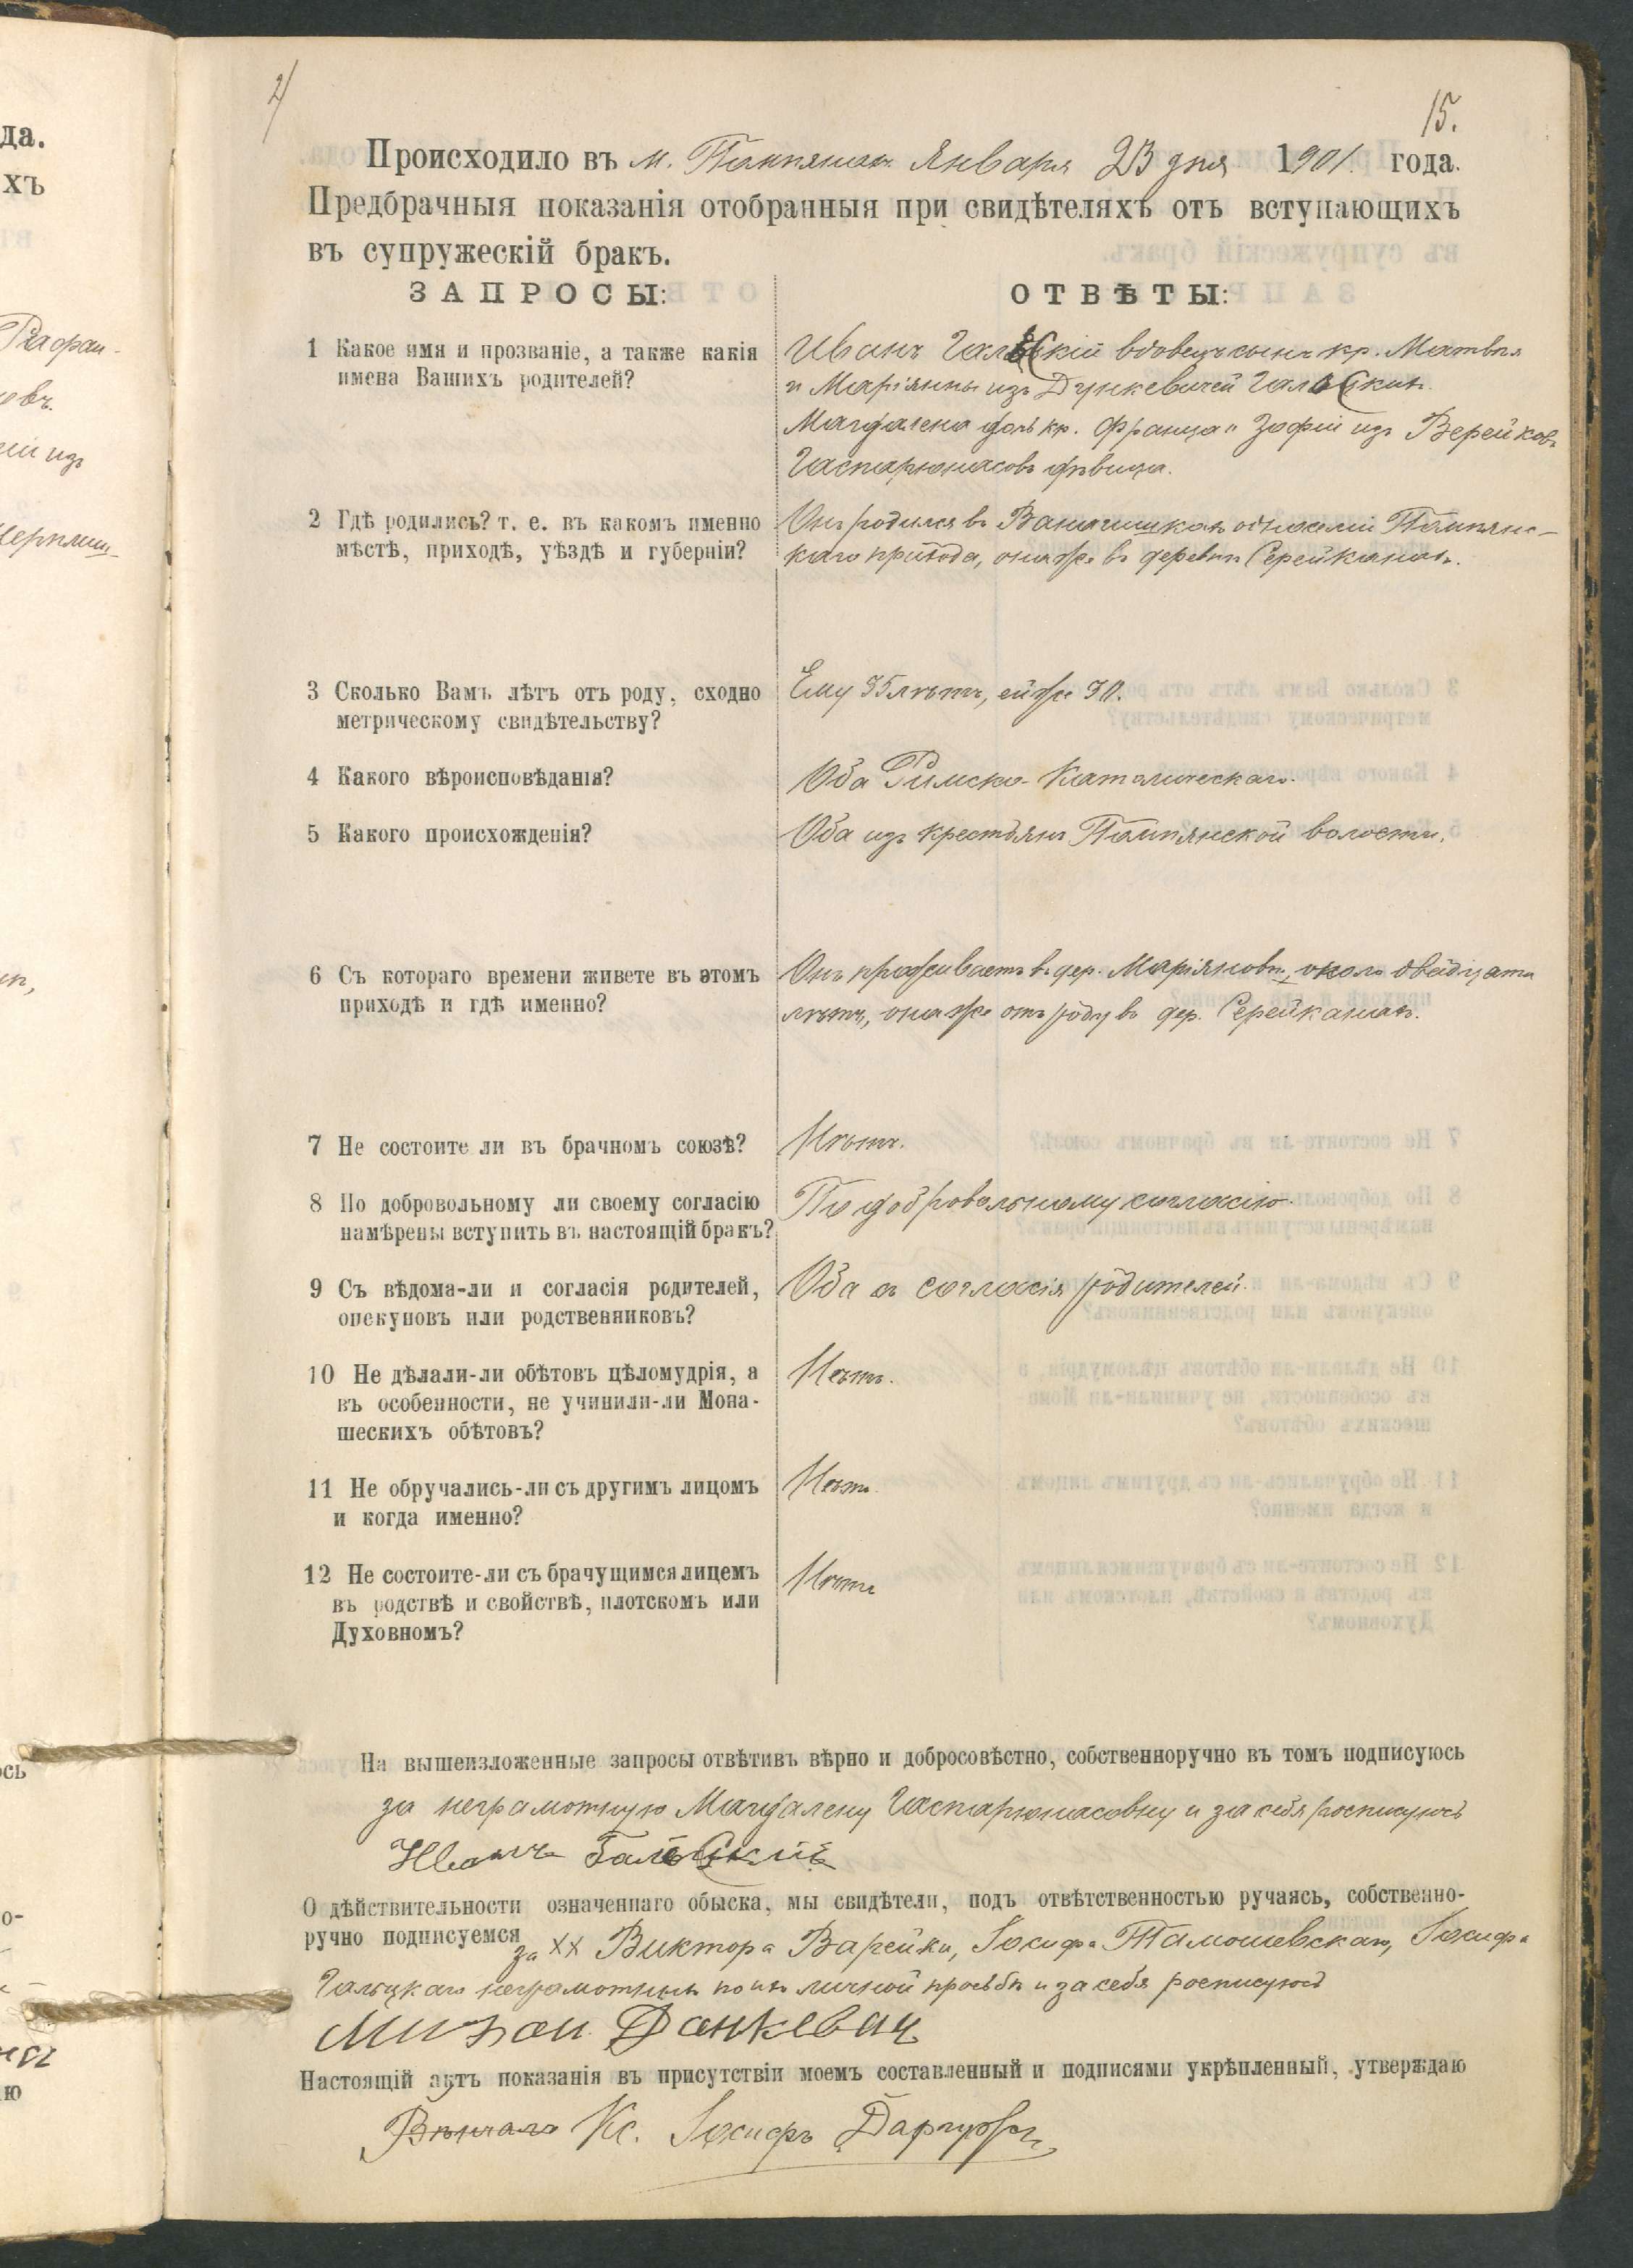 да.
хъ
2/
15.
Происходило въ м. Помпянах Января 23 дня 1901 года.
Предбрачныя показанія отобранныя при свидѣтеляхъ отъ вступающихъ
въ супружескій бракъ.
ЗАПРОСЫ:
ОТВѢТЫ:
1 Какое имя и прозваніе, а также какія
имена Вашихъ родителей?
Иванъ Гальскій вдовецъ сынъ кр. Матвѣя
и Маріянны изъ Дункевичей
Магдалена дочь кр. Франца и Зофіи изъ Верейковъ
Гаспарюнасовъ дѣвица.
2 Гдѣ родились? т. е. въ какомъ именно
мѣстѣ, приходѣ, уѣздѣ и губерніи?
Онъ родился въ околіи Помпянс-
каго прихода, она же въ деревнѣ Серейканахъ.
3 Сколько Вамъ лѣтъ отъ роду, сходно
метрическому свидѣтельству?
Ему 35 лѣтъ, ей же 30.
4 Какого вѣроисповѣданія?
Оба Римско-Католическаго.
5 Какого происхожденія?
Оба изъ крестьянъ Помпянской волости.
6 Съ котораго времени живете въ этомъ
приходѣ и гдѣ именно?
Онъ проживаетъ въ дер. Маріяновѣ, около двадцати
лѣтъ, она же отъ роду въ дер. Серейканахъ.
7 Не состоите ли въ брачномъ союзѣ?
Нѣтъ.
8 По добровольному ли своему согласію
намѣрены вступить въ настоящій бракъ?
По добровольному согласію.
9 Съ вѣдома-ли и согласія родителей,
опекуновъ или родственниковъ?
Оба съ согласія родителей.
10 Не дѣлали-ли обѣтовъ цѣломудрія, а
въ особенности, не учинили-ли Мона-
шескихъ обѣтовъ?
Нѣтъ.
11 Не обручались-ли съ другимъ лицомъ
и когда именно?
Нѣтъ.
12 Не состоите-ли съ брачущимся лицемъ
въ родствѣ и свойствѣ, плотскомъ или
Духовномъ?
Нѣтъ
На вышеизложенные запросы отвѣтивъ вѣрно и добросовѣстно, собственноручно въ томъ подписуюсь
за неграмотную Магдалену Гаспарюнасовну и за себя росписуюсь
Иванъ Гальскій
О дѣйствительности означеннаго обыска, мы свидѣтели, подъ отвѣтственностью ручаясь, собственно-
ручно подписуемся за ХХ Виктора Варейки, Іосифа Тамошевскаго, Іосифа
Гальцкаго неграмотныхъ по ихъ личной просьбѣ и за себя росписуюсь
Данкевич
Настоящій актъ показанія въ присутствіи моемъ составленный и подписями укрѣпленный, утверждаю
Вѣнчалъ Кс. Іосифъ Даргужъ